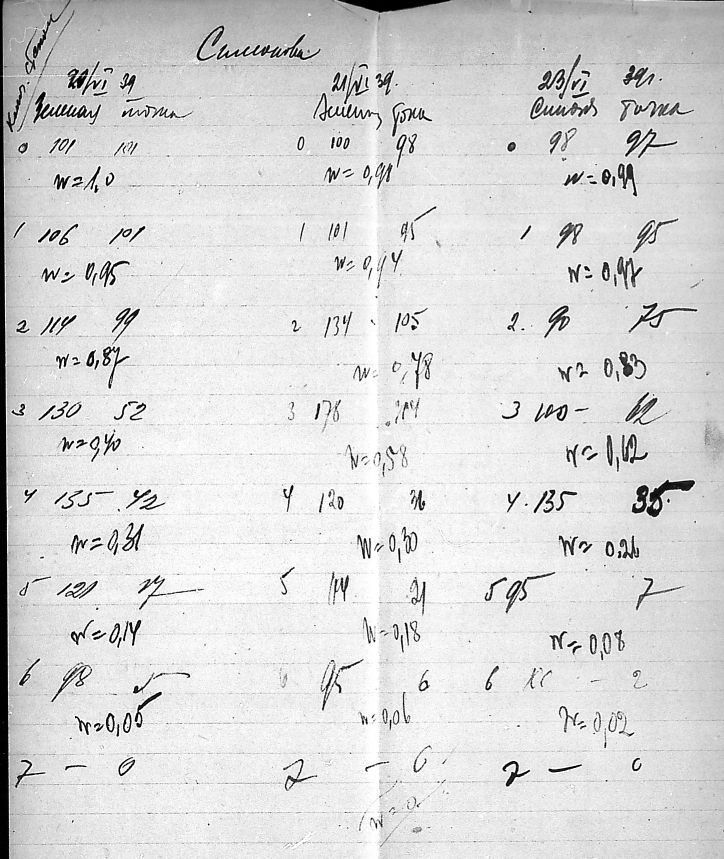 Симонова
20/VI 39 21/VI 39. 23/VI 39г.
Зеленая точка Зелен точка Синяя точка
0 101 101 0 100 98 0 98 97
w=1,0 w=0,98 w=0,99
1 106 101 1 101 95 1 98 95
w=0,95 w=0,94 w=0,97
2 114 99 2 134 105 2. 90 75
w=0,87 w=0,78 w=0,83
3 130 52 3 178 3 100 62
w=0,40 w=0,58 w=0,62
4 135 42 4 120 36 4. 135 35
w=0,31 w=0,30 w=0,26
5 121 17 5 114 21 5 95 7
w=0,14 w=0,18 w=0,08
6 98 5 6 95 6 6 - 2
w=0,05 w=0,06 w=0,02
7 - 0 7 - 0 7 - 0
w=0